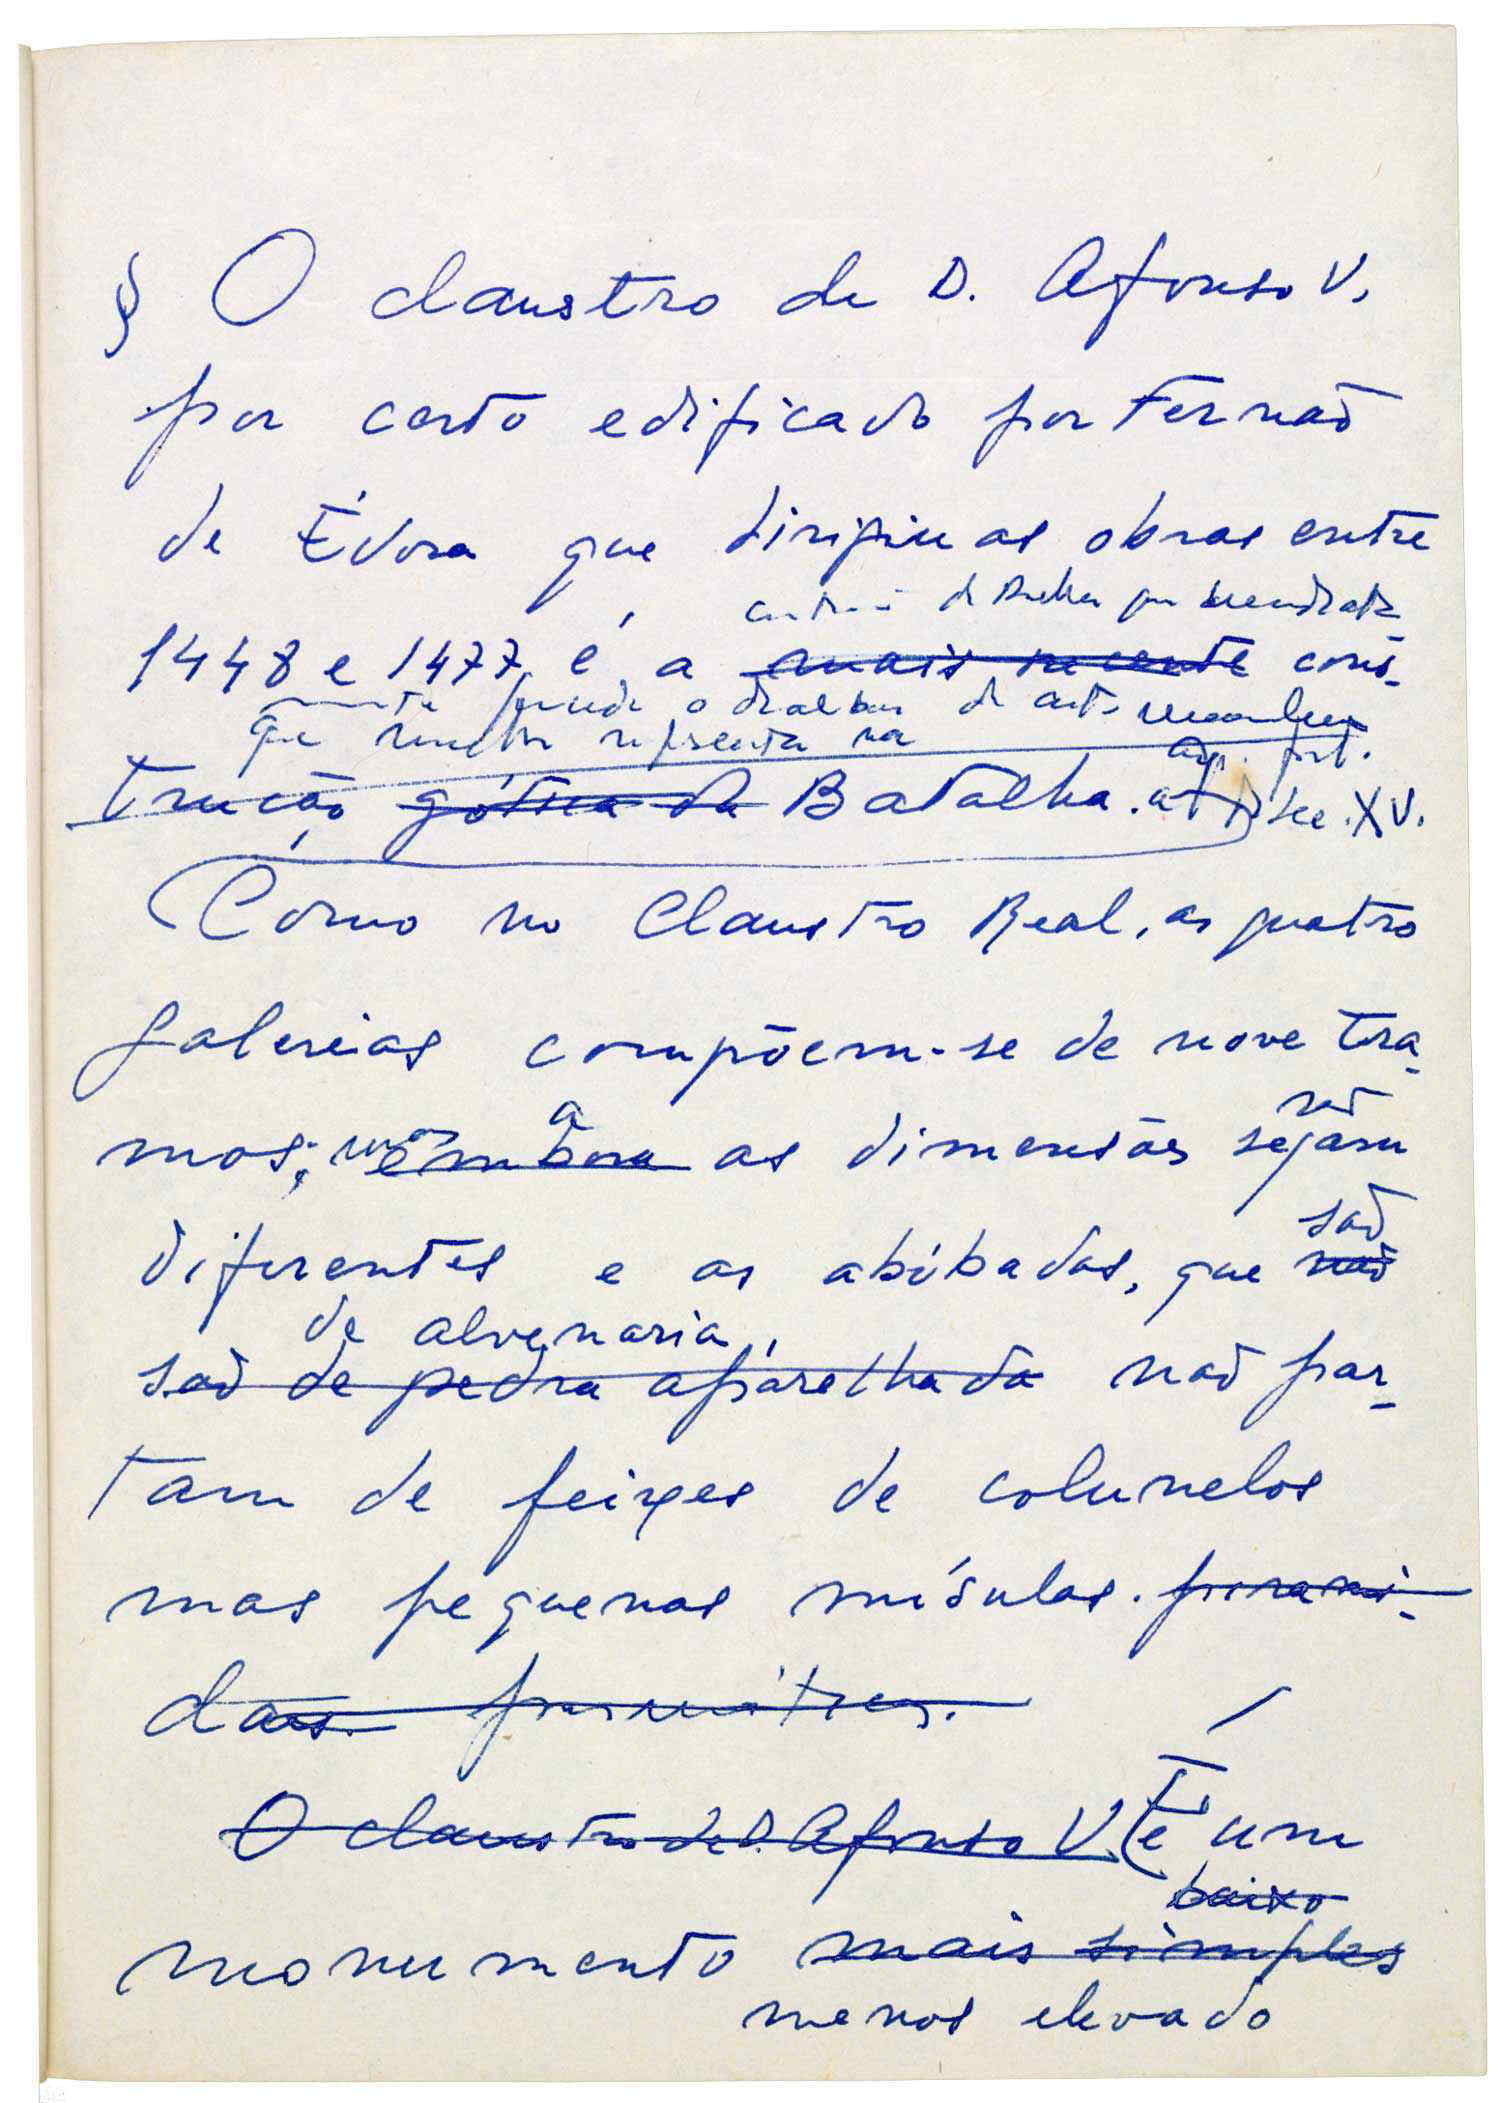 § O claustro de D. Afonso V,
por certo edificado por Fernão
de Évora que dirigiu as obras entre
da Batalha que
1448 e 1477, é a mais recente cons-
o de
que melhor representa na arq. port.
trução gótica da Batalha. séc. XV.
Como no Claustro Real, as quatro
galerias compõem-se de nove tra-
não
mos; mas embora as dimensões sejam
são
diferentes e as abóbadas, que não
de alvenaria,
são de pedra aparelhada não par-
tam de feixes de colunelos
mas pequenas mísulas. pirami-
dais. prismáticas.
O claustro de D. Afonso V. (é É um
baixo
monumento mais simples
menos elevado